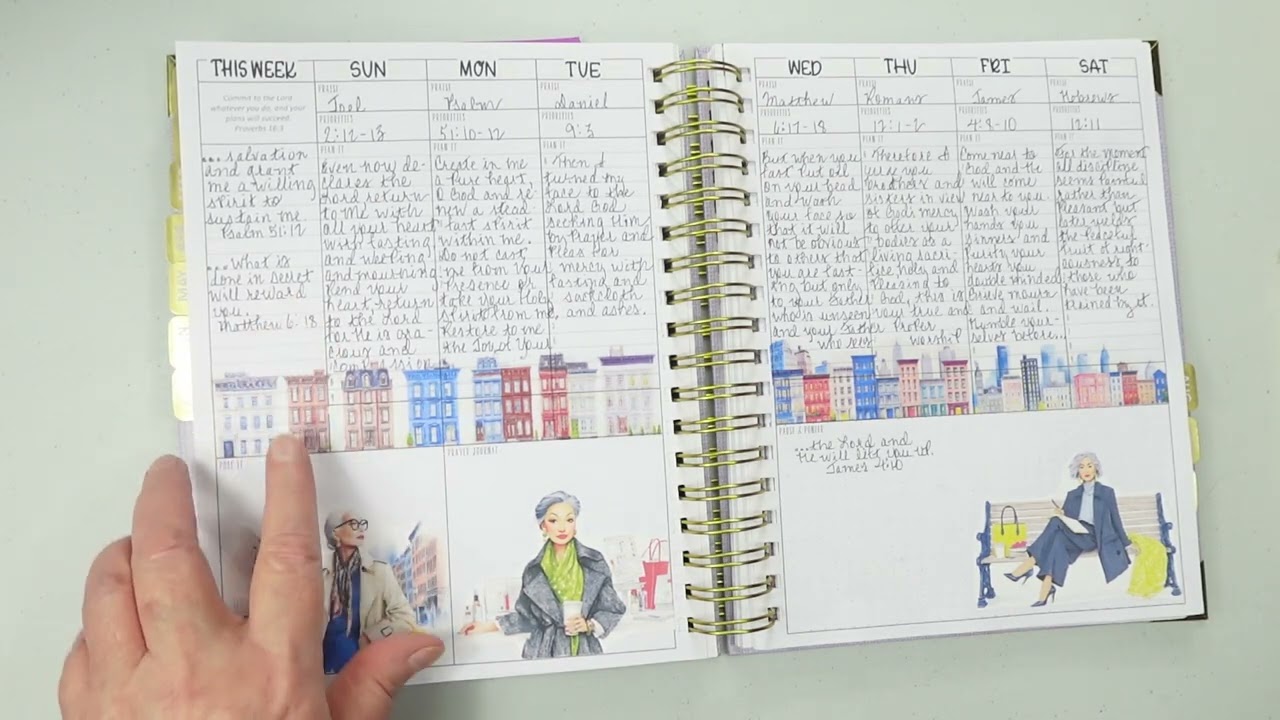 THIS WEEK
SUN
MON
TUE
WED
THU
FRI
SAT
Commit to the Lord
whatever you do, and your
plans will succeed.
Proverbs 16:3
PRAISE
Joel
PRIORITIES
2:12-13
PLAN IT
PRAISE
Psalm
PRIORITIES
51:10-12
PLAN IT
PRAISE
Daniel
PRIORITIES
9:3
PLAN IT
PRAISE
Matthew
PRIORITIES
6:17-18
PLAN IT
PRAISE
Romans
PRIORITIES
12:1-2
PLAN IT
PRAISE
James
PRIORITIES
4:8-10
PLAN IT
PRAISE
Hebrews
PRIORITIES
12:11
PLAN IT
...salvation
and grant
me a willing
spirit to
sustain me
Psalm 51:12
...what is
done in secret
will reward
you.
Matthew 6:18
Even now de-
clares the
Lord return
to me with
all your heart
with fasting
and weeping
and mourning
Rend your
heart. Return
to the Lord
for he is gra-
cious and
compassion
Create in me
a pure heart,
O God and re-
new a stead-
fast spirit
within me.
Do not cast
me from your
presence or
take your Holy
spirit from me,
Restore to me
the Joy of your
Then I
turned my
face to the
Lord God
seeking Him
by Prayer and
Pleas for
mercy with
fasting and
sackcloth
and ashes.
But when you
fast put oil
on your head
and wash
your face so
that it will
not be obvious
to others that
you are fast-
ing but only
to your Father
who is unseen
and your Father
who sees
Therefore I
urge you
brothers and
sisters in view
of Gods mercy
to offer your
bodies as a
living sacri-
fice holy and
Pleasing to
God, this is
your true and
Proper
worship
Come near to
God and He
will come
near to you
wash your
hands you
sinners and
purify your
hearts you
double minded.
Grieve mourn
and wail.
Humble your-
selves before...
For the moment
all discipline
seems painful
rather than
pleasant but
later yields
the peaceful
fruit of right-
eousness to
those who
have been
trained by it.
PRAYER JOURNAL
...the Lord and
He will lift you up.
James 4:10
MAY